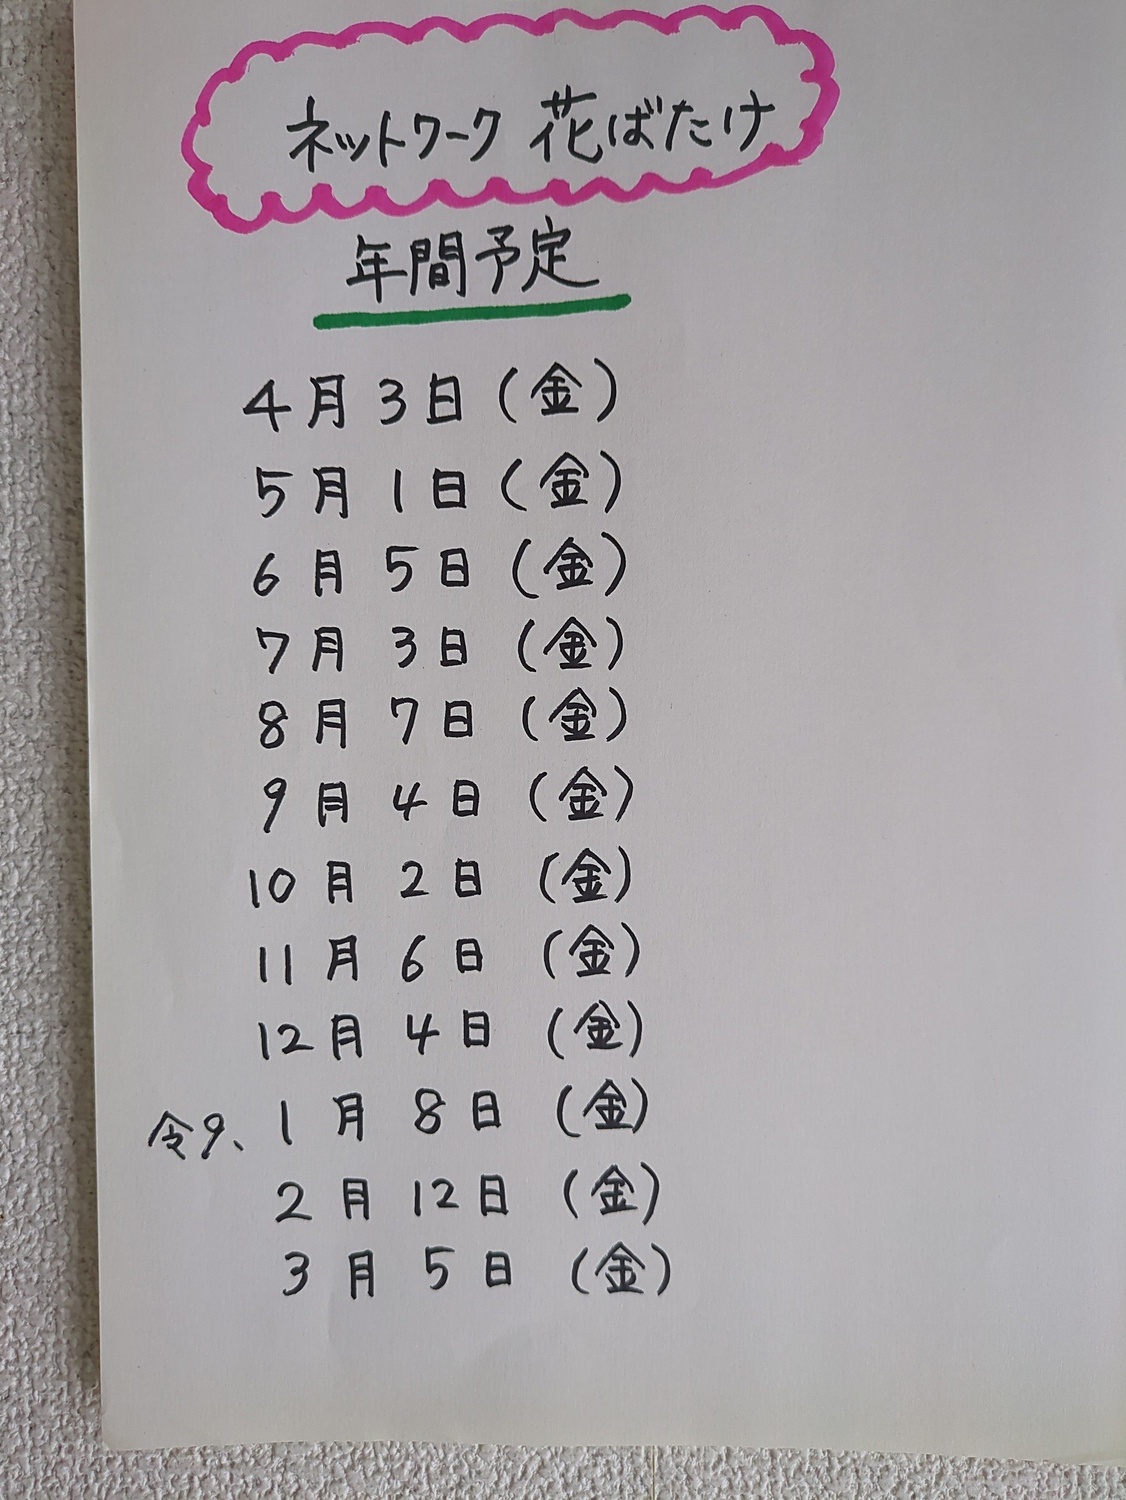 ネットワーク 花ばたけ
年間予定
4月3日(金)
5月1日(金)
6月5日(金)
7月3日(金)
8月7日(金)
9月4日(金)
10月2日(金)
11月6日(金)
12月4日(金)
令9、1月8日(金)
2月12日(金)
3月5日(金)